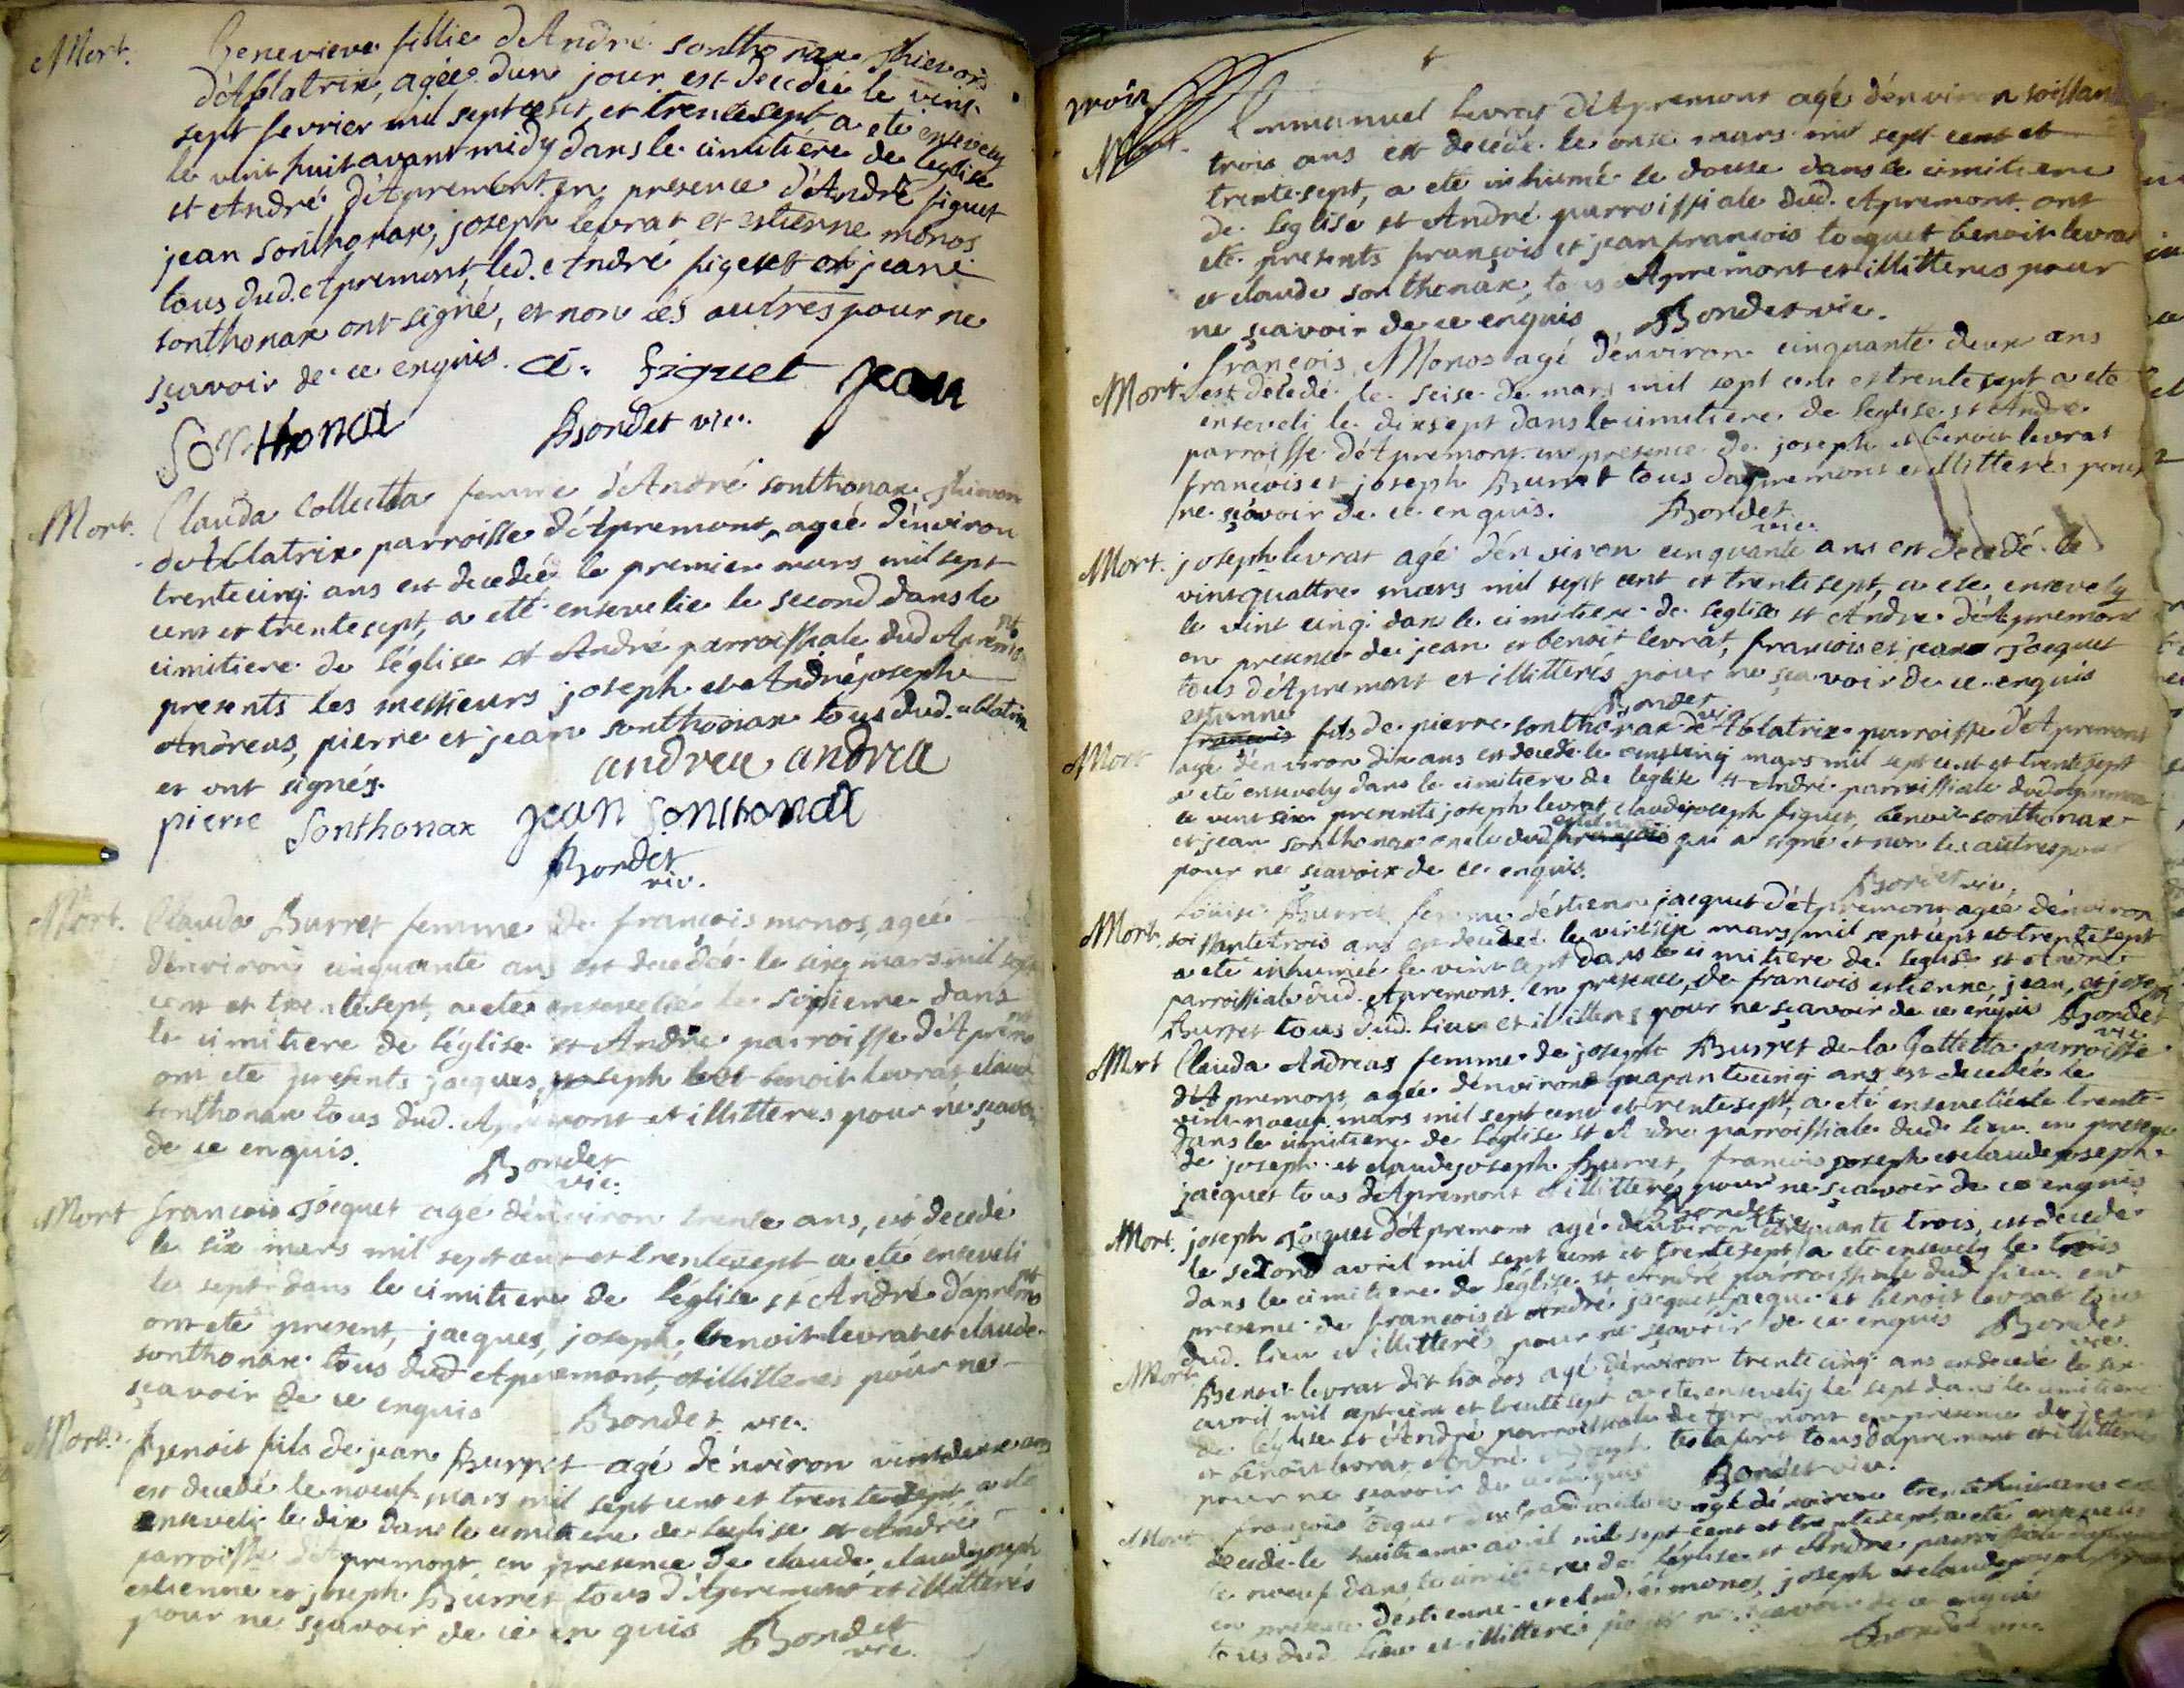 Mort. Genevieve fillie d'André sonthonax
d'Ablatrix, agée dun jour est decedée le vint
sept fevrier mil sept cent et trente sept a eté ensevely
le vint huit avant midy dans le cimitiére de leglise
st André d'Apremont en presence d'André figuet
jean sonthonax, joseph levrat et estienne monos
tous dud. Apremont, led. André figuet et jean
sonthonax ont signé, et non les autres pour ne
sçavoir de ce enquis. a. figuet jean
Sonthonax Bondet vic.
Mort. Clauda Collecta femme d'André sonthonax
d'Ablatrix parroisse d'Apremont, agée d'environ
trente cinq ans est decedée le premier mars mil sept
cent et trente sept, a eté ensevelie le second dans le
cimitiere de l'église st André parroissiale dud Apremont
presents les messieurs joseph et André joseph
Andreas, pierre et jean sonthonax tous dud. ablatrix
et ont signés. andrea andrea
pierre Sonthonax jean Sonthonax
Bondet
vic.
Mort. Clauda Burret femme de francois monos, agée
d'environ cinquante ans est decedée le cinq mars mil sept
cent et trente sept, a eté ensevelie le sixieme dans
le cimitiere de l'église st André parroisse d'Apremont
ont eté presents jacques, joseph et benoit levrat, claude
sonthonax tous dud. Apremont et illitteres pour ne sçavoir
de ce enquis. Bondet
vic.
Mort francois Jocquet agé d'environ trente ans, est decedé
le six mars mil sept cent et trente sept a eté enseveli
le sept dans le cimitiere de l'église st André d'apremont
ont eté present, jacques, joseph, benoit levrat et claude
sonthonax tous dud Apremont, et illitteres pour ne
sçavoir de ce enquis Bondet vic.
Mort. Benoit fils de jean Burret agé d'environ vint deux ans
est decedé le noeuf mars mil sept cent et trente sept a eté
enseveli le dix dans le cimitiere de leglise st André
parroisse d'Apremont en presence de claude, claude joseph
estienne et joseph Burret tous d'Apremont et illitterés
pour ne sçavoir de ce en quis Bondet
vic.
Mort. Emmanuel levrat d'Apremont agé d'environ soissante
trois ans est decedé le onze mars mil sept cent et
trente sept, a eté inhumé le douse dans le cimitiere
de leglise st André parroissiale dud. Apremont. ont
eté presents françois et jean francois Jocquet benoit levrat
et claude sonthonax, tous d'Apremont et illitteres pour
ne sçavoir de ce enquis Bondet vic.
Mort. francois Monos agé d'environ cinquante deux ans
est decedé le seise de mars mil sept cent et trente sept a eté
enseveli le dix sept dans le cimitiere de leglise st André
parroisse d'Apremont en presence de joseph et benoit levrat
francois et joseph Burret tous d'apremont et illitterés pour
ne sçavoir de ce enquis. Bondet
vic.
Mort. joseph levrat agé d'environ cinquante ans est decedé le
vint quattre mars mil sept cent et trente sept, a eté ensevely
le vint cinq dans le cimitiere de leglise st André d'Apremont
en presence de jean et benoit levrat, francois et jean Jocquet
tous d'Apremont et illitterés pour ne sçavoir de ce enquis
Bondet vic.
estienne
Mort francois fils de pierre sonthonax d'Ablatrix parroisse d'Apremont
agé d'environ dix ans est decedé le vint cinq mars mil sept cent et trente sept
a eté ensevely dans le cimitiere de leglise st André parroissiale dud Apremont
le vint six presents joseph levrat, claude joseph figuet, benoit sonthonax
et jean sonthonax oncle dud estienne francois qui a signé et non les autres pour
pour ne sçavoir de ce enquis.
Bondet vic.
Mort. Loüise Burret femme d'estienne jacquet d'Apremont agée d'environ
soissante trois ans est decedée le vint six mars mil sept cent et trente sept
a eté inhumée le vint sept dans le cimitiere de leglise st André
parroissiale dud. Apremont. en presence de francois estienne, jean, et joseph
Burret tous dud. lieu et illitteres pour ne sçavoir de ce enquis Bondet
vic.
Mort Clauda Andreas femme de joseph Burret de la Gattetta parroisse
d'Apremont agée d'environ quarante cinq ans est decedée le
vint noeuf mars mil sept cent et trente sept, a eté ensevelie le trente
dans le cimitiere de leglise st André parroissiale dud. lieu en presence
de joseph et claude joseph Burret, francois joseph et claude joseph
jacquet tous d'Apremont et illitterés pour ne sçavoir de ce enquis
Bondet vic.
Mort. joseph Jocquet d'Apremont agé d'environ cinquante trois, est decedé
le second avril mil sept cent et trente sept a eté ensevely le trois
dans le cimitiere de leglise st André parroissiale dud lieu en
presence de francois et André jacquet, jacque et benoit levrat tous
dud. lieu et illitterés pour ne sçavoir de ce enquis Bondet
vic.
Mort Benoit levrat dit agé d'environ trente cinq ans est decedé le six
avril mil sept cent et trente sept a eté ensevely le sept dans le cimitiere
de leglise st André parroissiale d'Apremont en presence de jean
et benoit levrat André et joseph tous d'apremont et illitteres
pour ne sçavoir de ce enquis Bondet vic.
Mort francois Jocquet agé d'environ trente huit ans est
decedé le huitieme avril mil sept cent et trente sept, a eté ensevely
le noeuf dans le cimitiere de l'église st André parroissiale
en presence d'estienne et monos, joseph et claude joseph
tous dud lieu et illitterés pour ne sçavoir de ce enquis
Bondet vic.